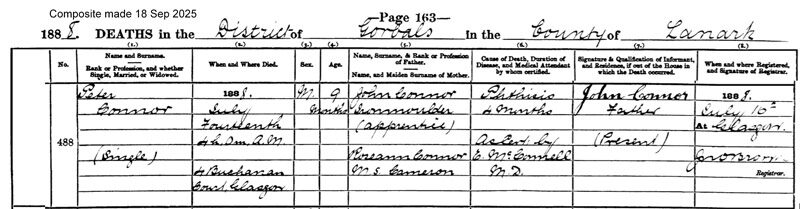 Composite made 18 Sep 2025
Page 163
1888. DEATHS in the District of Gorbals in the County of Lanark
(1.) (2.) (3.) (4.) (5.) (6.) (7.) (8.)
No.
Name and Surname.
Rank or Profession, and whether Single, Married, or Widowed.
When and Where Died.
Sex.
Age.
Name, Surname, & Rank or Profession of Father.
Name, and Maiden Surname of Mother.
Cause of Death, Duration of Disease, and Medical Attendant by whom certified.
Signature & Qualification of Informant, and Residence, if out of the House in which the Death occurred.
When and where Registered, and Signature of Registrar.
488
Peter
Connor
(Single)
1888.
July
Fourteenth
4 h. 0 m. A.M.
4 Buchanan
Court, Glasgow
M.
9
Months
John Connor
Ironmoulder
(apprentice)
Roseann Connor
M.S. Cameron
Phthisis
4 Months
As Cert. by
E. McConnell
M.D.
John Connor
Father
(Present)
1888.
July 16th
At Glasgow.
Registrar.